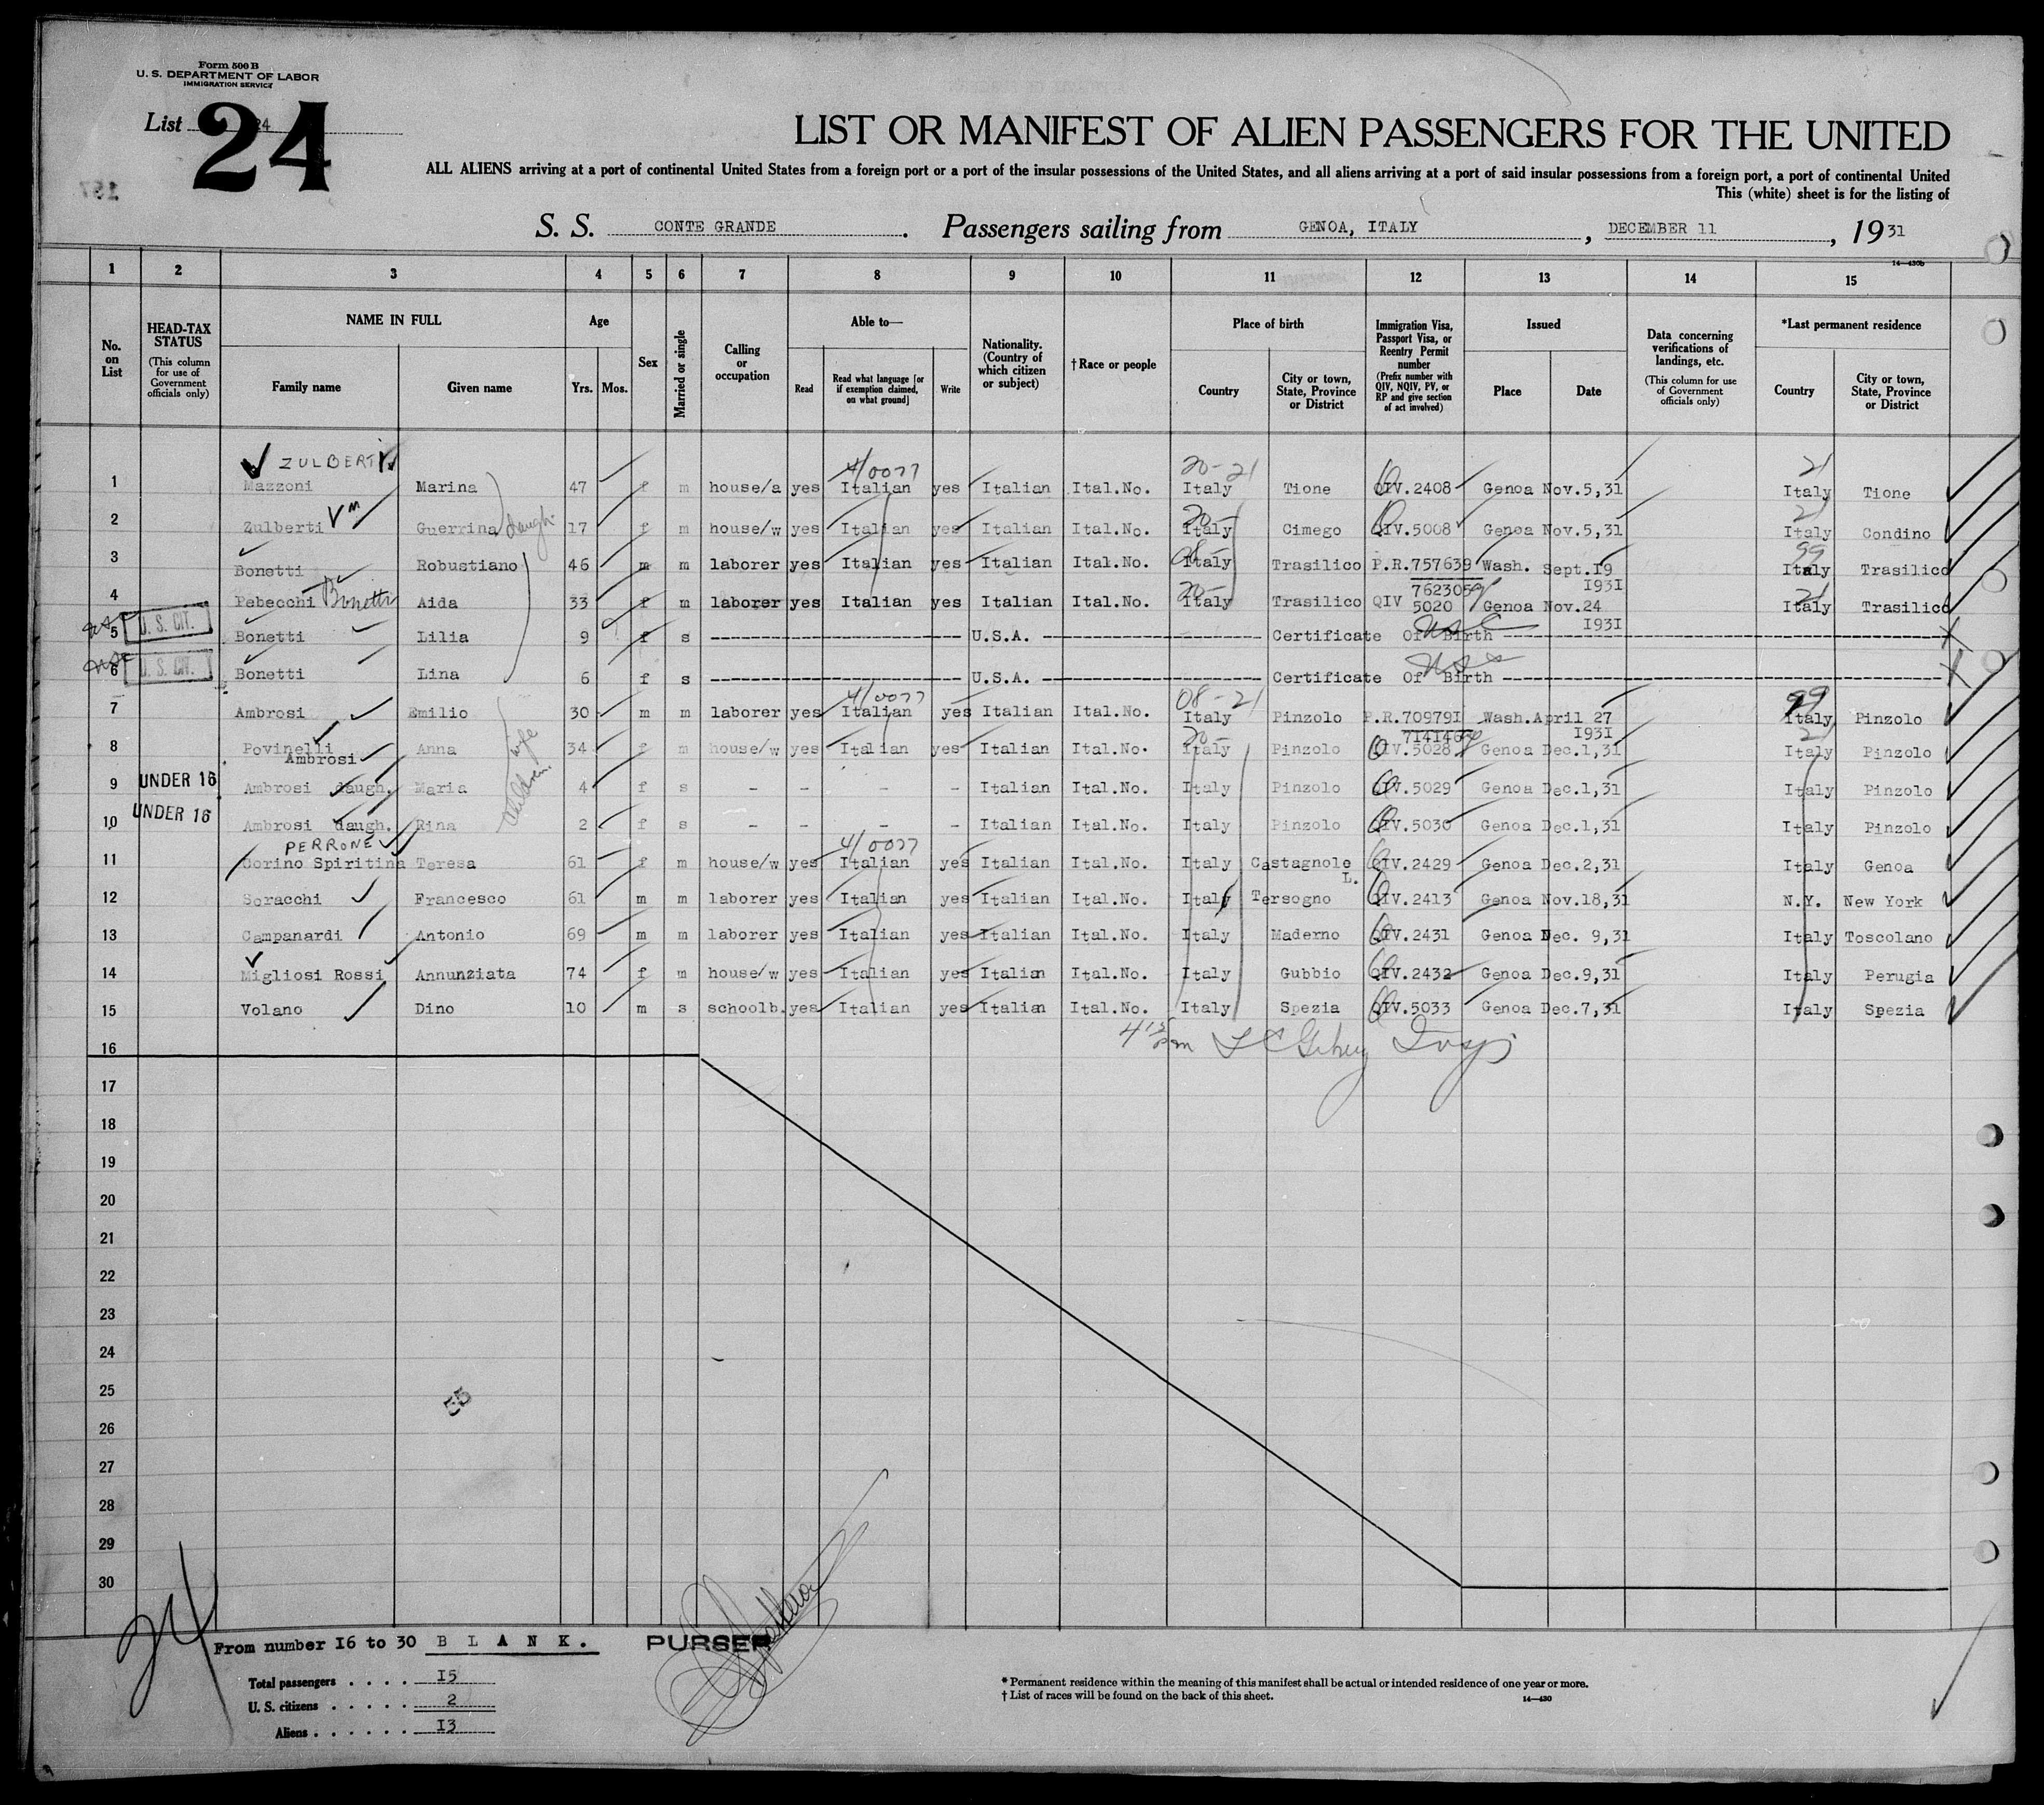 Form 500 B
U. S. DEPARTMENT OF LABOR
IMMIGRATION SERVICE
List 24
24
LIST OR MANIFEST OF ALIEN PASSENGERS FOR THE UNITED
ALL ALIENS arriving at a port of continental United States from a foreign port or a port of the insular possessions of the United States, and all aliens arriving at a port of said insular possessions from a foreign port, a port of continental United
This (white) sheet is for the listing of
S. S. CONTE GRANDE. Passengers sailing from GENOA, ITALY, DECEMBER 11, 1931
14—430b
1 2 3 4 5 6 7 8 9 10 11 12 13 14 15
No. on List
HEAD-TAX STATUS (This column for use of Government officials only)
NAME IN FULL
Family name Given name
Age
Yrs. Mos.
Sex
Married or single
Calling or occupation
Able to—
Read Read what language [or if exemption claimed, on what ground] Write
Nationality. (Country of which citizen or subject)
† Race or people
Place of birth
Country City or town, State, Province or District
Immigration Visa, Passport Visa, or Reentry Permit number (Prefix number with QIV, NQIV, PV, or RP and give section of act involved)
Issued
Place Date
Data concerning verifications of landings, etc. (This column for use of Government officials only)
*Last permanent residence
Country City or town, State, Province or District
ZULBERTI 4/0077 20-21 21
1 Mazzoni Marina 47 f m house/a yes Italian yes Italian Ital.No. Italy Tione QIV.2408 Genoa Nov.5,31 Italy Tione
20- 21
2 Zulberti Guerrina daugh. 17 f m house/w yes Italian yes Italian Ital.No. Italy Cimego QIV.5008 Genoa Nov.5,31 Italy Condino
08- 99
3 Bonetti Robustiano 46 m m laborer yes Italian yes Italian Ital.No. Italy Trasilico P.R.757639 Wash. Sept.19 1931 Italy Trasilico
762305
20- 21
4 Pebecchi Bonetti Aida 33 f m laborer yes Italian yes Italian Ital.No. Italy Trasilico QIV 5020 Genoa Nov.24 1931 Italy Trasilico
usc U. S. CIT. usc
5 Bonetti Lilia 9 f s U.S.A. Certificate Of Birth
usc U. S. CIT. usc
6 Bonetti Lina 6 f s U.S.A. Certificate Of Birth
4/0077 08-21 99
7 Ambrosi Emilio 30 m m laborer yes Italian yes Italian Ital.No. Italy Pinzolo P.R.709791 Wash.April 27 1931 Italy Pinzolo
20- 21
8 Povinelli Ambrosi Anna wife 34 f m house/w yes Italian yes Italian Ital.No. Italy Pinzolo QIV.5028 Genoa Dec.1,31 Italy Pinzolo
9 UNDER 16 Ambrosi daugh. Maria children 4 f s - - - - Italian Ital.No. Italy Pinzolo QIV.5029 Genoa Dec.1,31 Italy Pinzolo
10 UNDER 16 Ambrosi daugh. Rina 2 f s - - - - Italian Ital.No. Italy Pinzolo QIV.5030 Genoa Dec.1,31 Italy Pinzolo
PERRONE 4/0077
11 Corino Spiritina Teresa 61 f m house/w yes Italian yes Italian Ital.No. Italy Castagnole L. QIV.2429 Genoa Dec.2,31 Italy Genoa
12 Soracchi Francesco 61 m m laborer yes Italian yes Italian Ital.No. Italy Tersogno QIV.2413 Genoa Nov.18,31 N.Y. New York
13 Campanardi Antonio 69 m m laborer yes Italian yes Italian Ital.No. Italy Maderno QIV.2431 Genoa Dec. 9,31 Italy Toscolano
14 Migliosi Rossi Annunziata 74 f m house/w yes Italian yes Italian Ital.No. Italy Gubbio QIV.2432 Genoa Dec.9,31 Italy Perugia
15 Volano Dino 10 m s schoolb. yes Italian yes Italian Ital.No. Italy Spezia QIV.5033 Genoa Dec.7,31 Italy Spezia
16
17
18
19
20
21
22
23
24
25
26
27
28
29
30
24
From number 16 to 30 B L A N K.
PURSER
Total passengers . . . . 15
U. S. citizens . . . . . 2
Aliens . . . . . . 13
* Permanent residence within the meaning of this manifest shall be actual or intended residence of one year or more.
† List of races will be found on the back of this sheet.
14—430